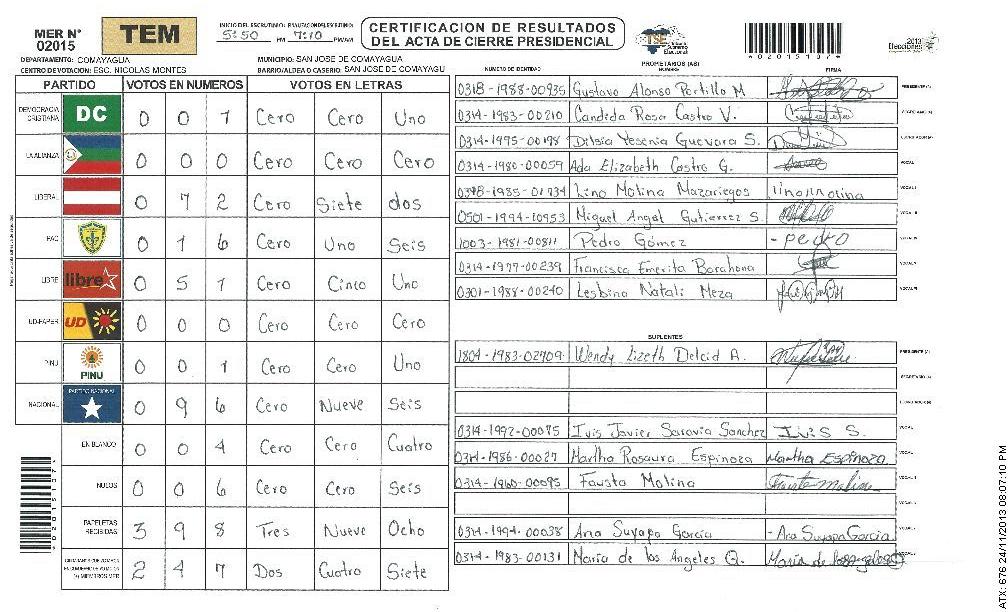 MER N° 02015
TEM
INICIO DEL ESCRUTINIO: FINALIZACION DEL ESCRUTINIO:
5:50 PM 7:10 PM/AM
CERTIFICACION DE RESULTADOS
DEL ACTA DE CIERRE PRESIDENCIAL
TSE
Tribunal Supremo Electoral
0201510?
2013
Elecciones
DEPARTAMENTO: COMAYAGUA
MUNICIPIO: SAN JOSE DE COMAYAGUA
CENTRO DE VOTACION: ESC. NICOLAS MONTES
BARRIO/ALDEA O CASERIO: SAN JOSE DE COMAYAGU
PARTIDO VOTOS EN NUMEROS VOTOS EN LETRAS
DEMOCRACIA CRISTIANA DC 0 0 1 Cero Cero Uno
LA ALIANZA 0 0 0 Cero Cero Cero
LIBERAL 0 7 2 Cero Siete dos
PAC 0 1 6 Cero Uno Seis
LIBRE libre 0 5 1 Cero Cinco Uno
UD-FAPER UD 0 0 0 Cero Cero Cero
PINU PINU 0 0 1 Cero Cero Uno
NACIONAL PARTIDO NACIONAL 0 9 6 Cero Nueve Seis
EN BLANCO 0 0 4 Cero Cero Cuatro
NULOS 0 0 6 Cero Cero Seis
PAPELETAS RECIBIDAS 3 9 8 Tres Nueve Ocho
2 4 7 Dos Cuatro Siete
NUMERO DE IDENTIDAD PROPIETARIOS (AS) NOMBRE FIRMA
0318-1988-00935 Gustavo Alonso Portillo M PRESIDENTE (A)
0314-1983-00210 Candida Rosa Castro V. SECRETARIO (A)
0314-1995-00198 Dilsia Yesenia Guevara S. ESCRUTADOR (A)
0314-1980-00059 Ada Elizabeth Castro G. VOCAL I
0318-1985-01934 Lino Molina Mazariegos lino molina VOCAL II
0501-1994-10953 Miguel Angel Gutierrez S VOCAL III
1003-1981-00811 Pedro Gómez - pedro VOCAL IV
0314-1977-00239 Francisca Emerita Barahona VOCAL V
0301-1988-00240 Lesbina Natali Meza VOCAL VI
SUPLENTES
1804-1983-02909 Wendy Lizeth Delcid A. PRESIDENTE (A)
SECRETARIO (A)
ESCRUTADOR (A)
0314-1992-00075 Ivis Javier Saravia Sanchez IVIS S. VOCAL I
0314-1986-00027 Martha Rosaura Espinoza Martha Espinoza VOCAL II
0314-1960-00095 Fausto Molina Fausto Molina
0314-1994-00038 Ana Suyapa Garcia - Ana Suyapa Garcia
0314-1983-00131 Maria de los Angeles Q. Maria de los angeles Q
ATX: 676 24/11/2013 08:07:10 PM